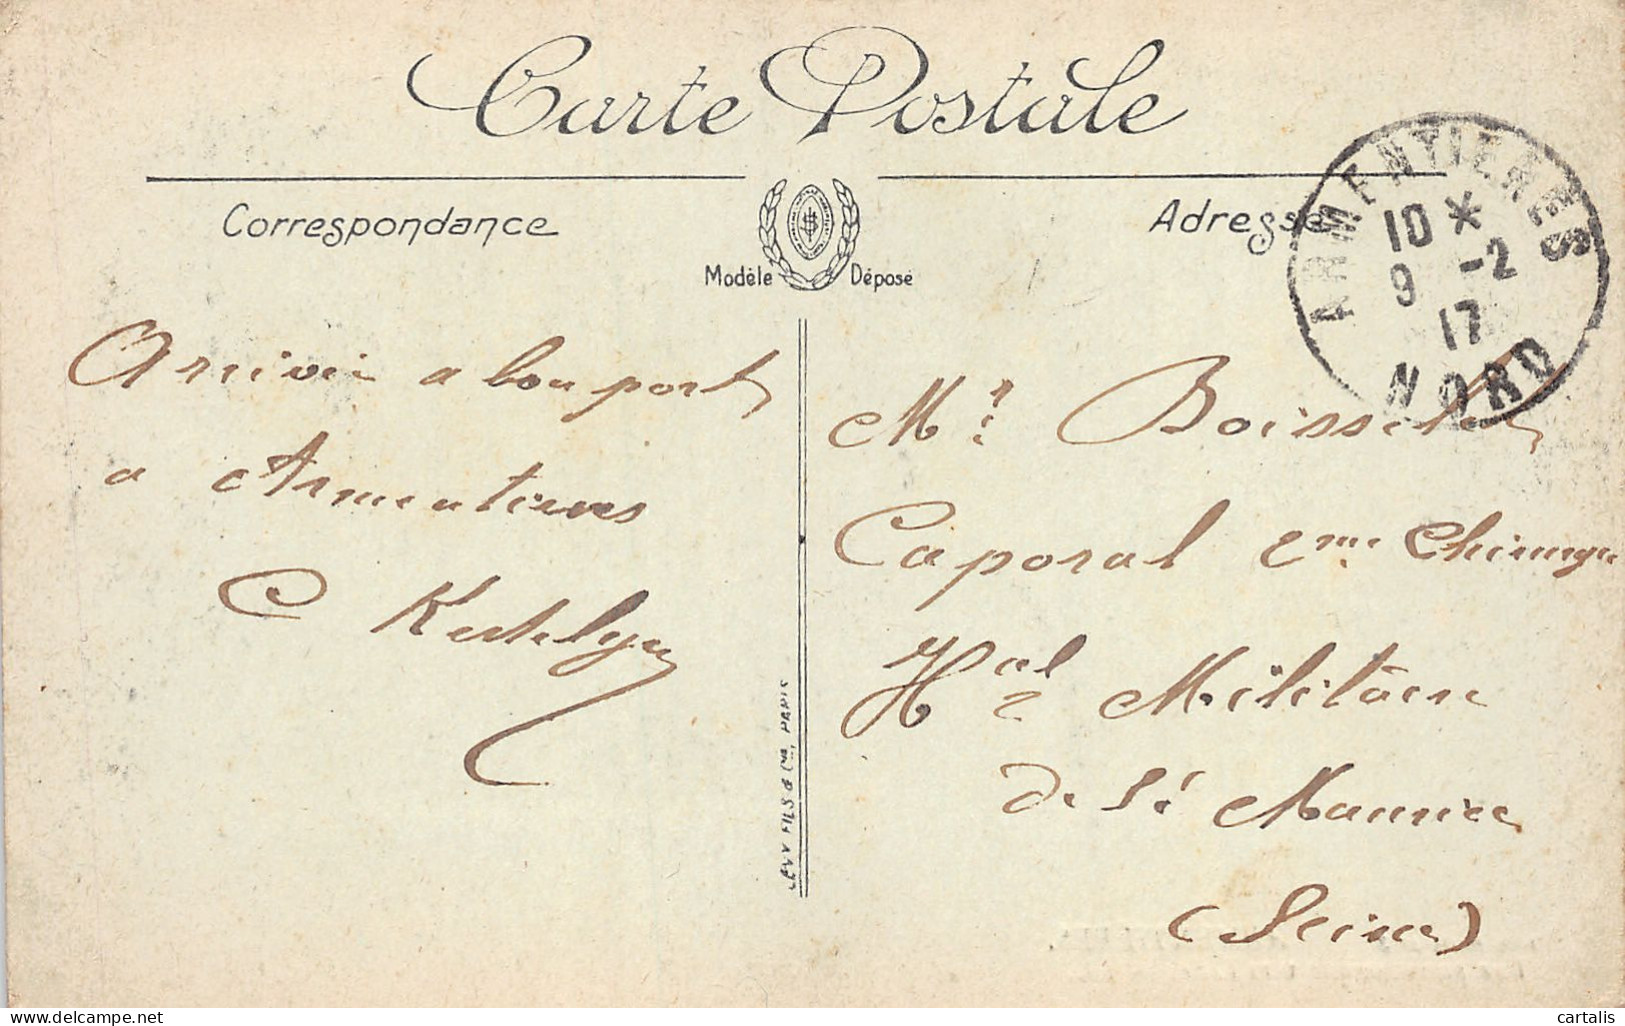 Carte Postale
Correspondance
Modèle Déposé
Adresse
ARMENTIERES
10 *
9 -2
17
NORD
Arrivée a bon port
a Armentieres
C Kestelyn
LEVY FILS & Cie, PARIS
Mr Boisselet
Caporal 2me Chirurgie
Hal Militaire
de St Maurice
(Seine)
delcampe.net
cartalis